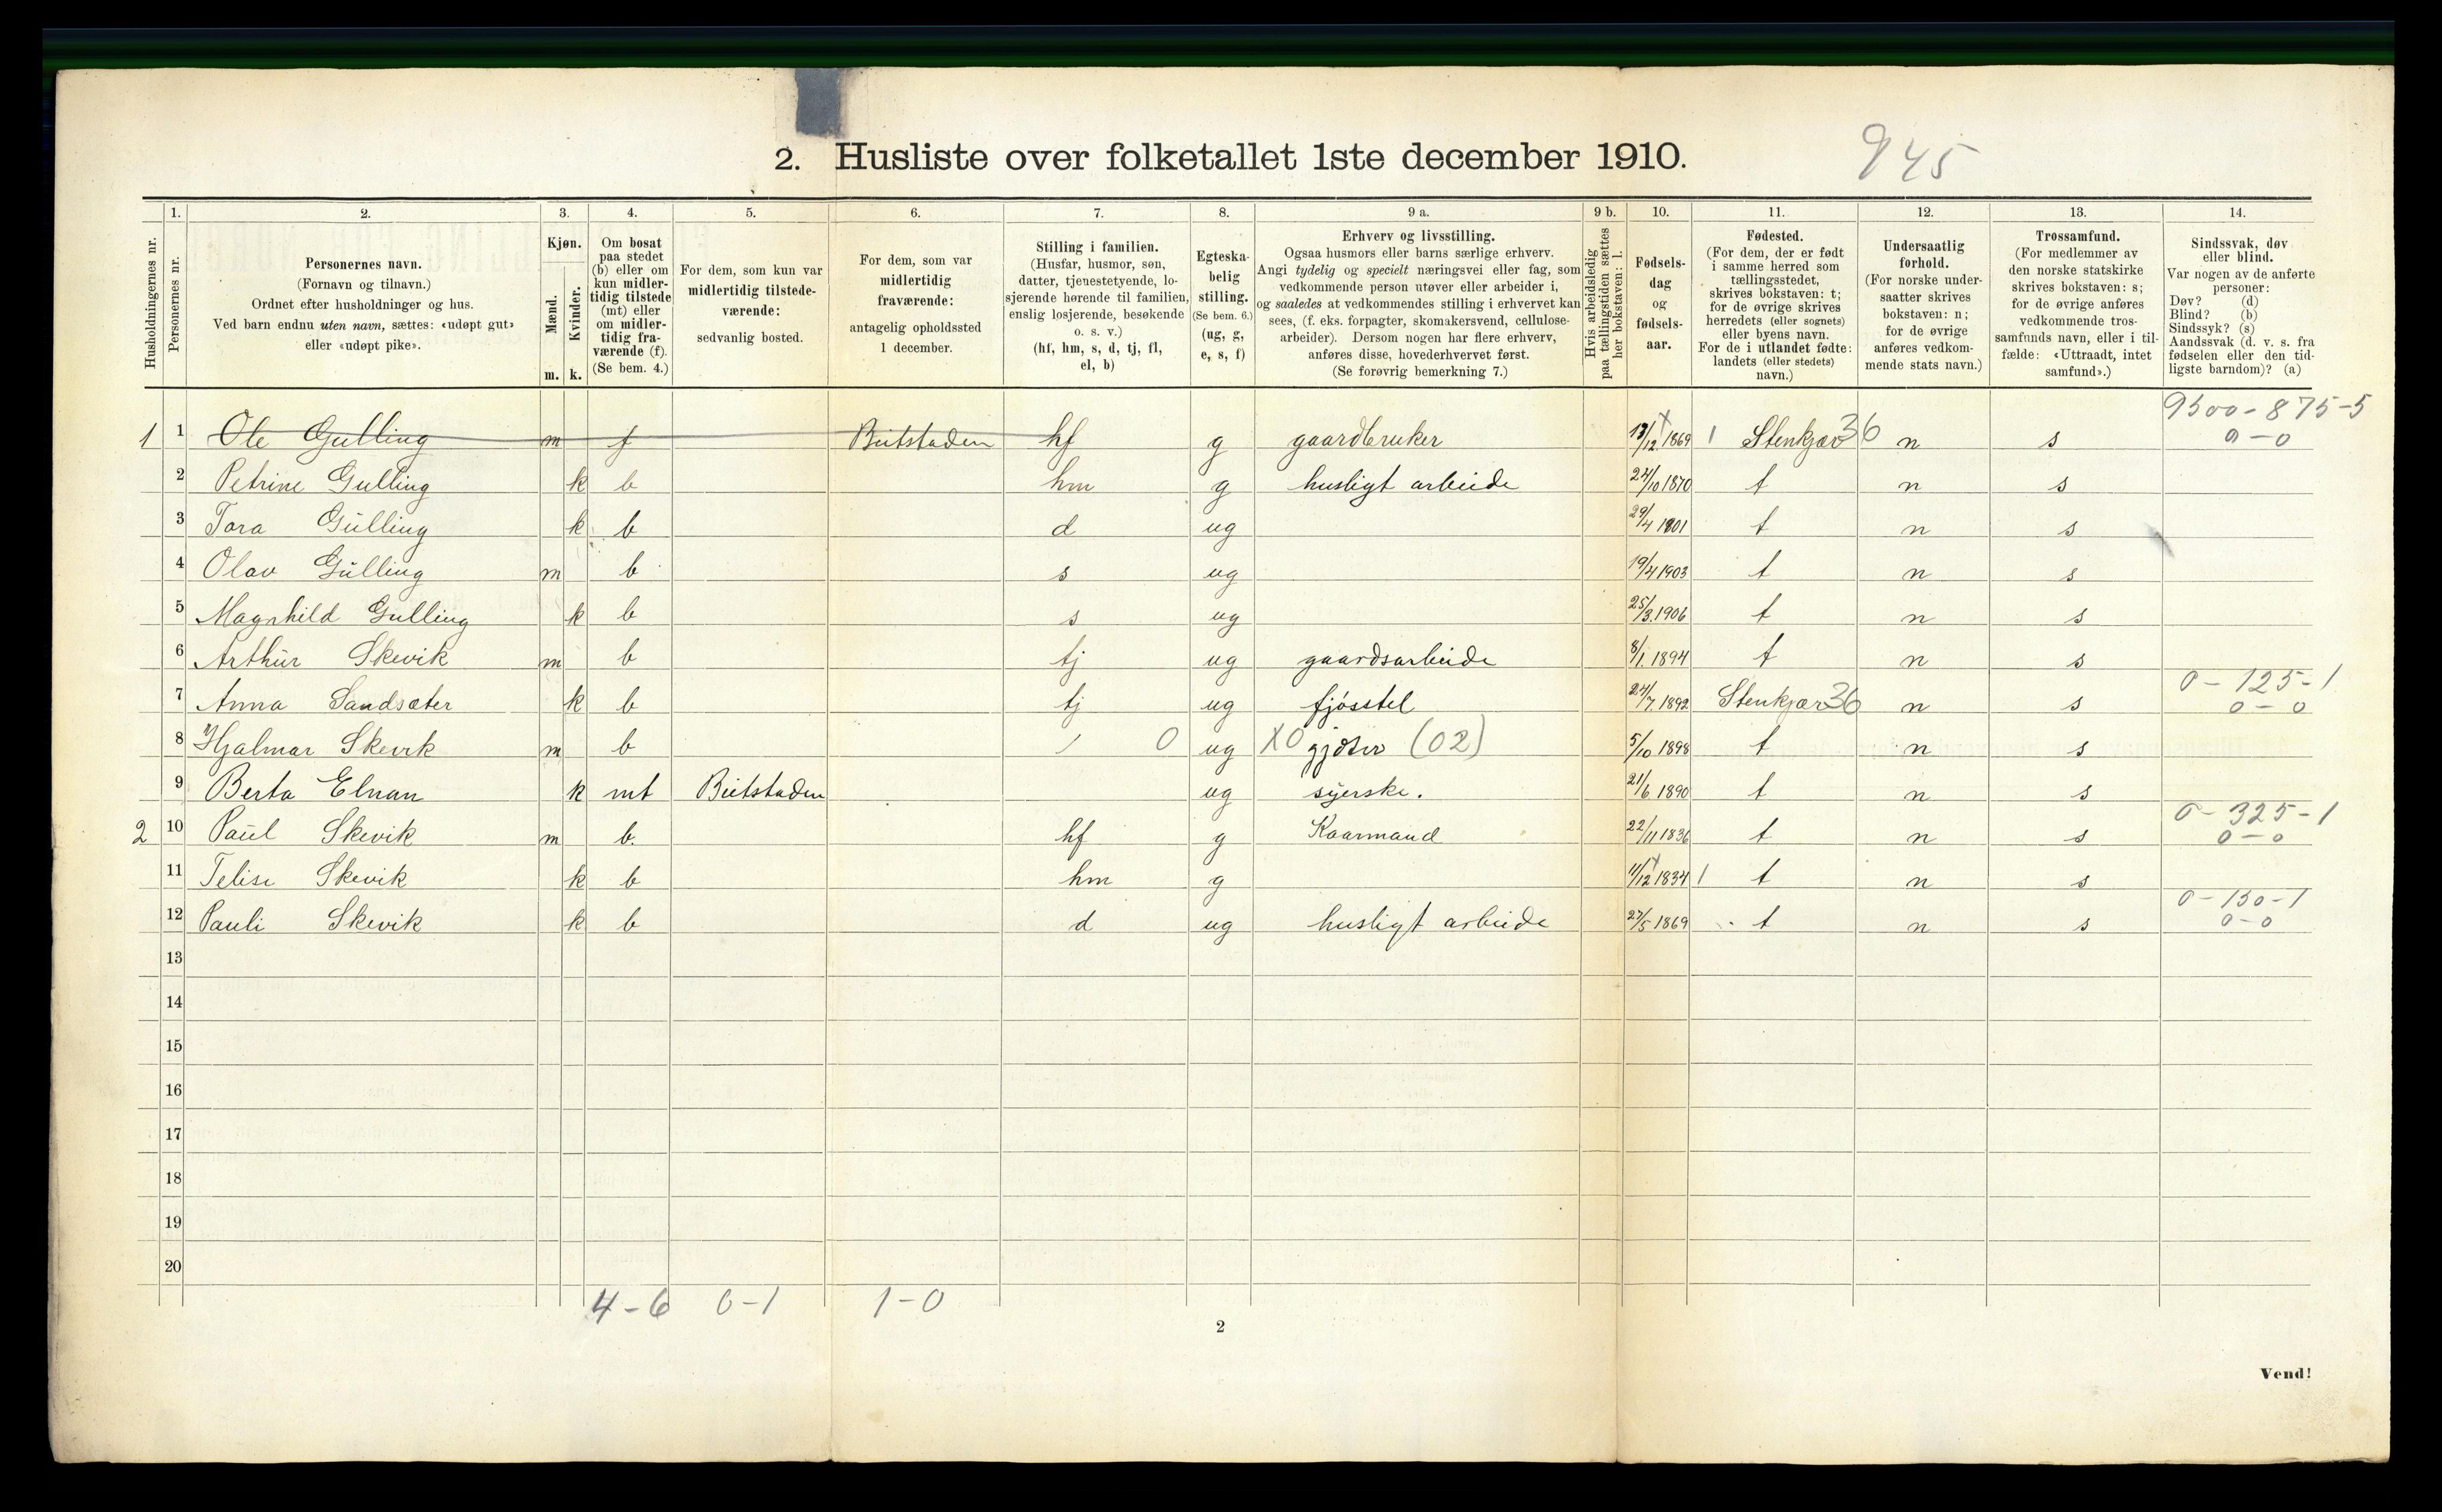 2. Husliste over folketallet 1ste december 1910.
945
1. 2. 3. 4. 5. 6. 7. 8. 9 a. 9 b. 10. 11. 12. 13. 14.
Husholdningernes nr.
Personernes nr.
Personernes navn.
(Fornavn og tilnavn.)
Ordnet efter husholdninger og hus.
Ved barn endnu uten navn, sættes: «udøpt gut»
eller «udøpt pike».
Kjøn.
Mænd.
Kvinder.
m. k.
Om bosat
paa stedet
(b) eller om
kun midler-
tidig tilstede
(mt) eller
om midler-
tidig fra-
værende (f).
(Se bem. 4.)
For dem, som kun var
midlertidig tilstede-
værende:
sedvanlig bosted.
For dem, som var
midlertidig
fraværende:
antagelig opholdssted
1 december.
Stilling i familien.
(Husfar, husmor, søn,
datter, tjenestetyende, lo-
sjerende hørende til familien,
enslig losjerende, besøkende
o. s. v.)
(hf, hm, s, d, tj, fl,
el, b)
Egteska-
belig
stilling.
(Se bem. 6.)
(ug, g,
e, s, f)
Erhverv og livsstilling.
Ogsaa husmors eller barns særlige erhverv.
Angi tydelig og specielt næringsvei eller fag, som
vedkommende person utøver eller arbeider i,
og saaledes at vedkommendes stilling i erhvervet kan
sees, (f. eks. forpagter, skomakersvend, cellulose-
arbeider). Dersom nogen har flere erhverv,
anføres disse, hovederhvervet først.
(Se forøvrig bemerkning 7.)
Hvis arbeidsledig
paa tællingstiden sættes
her bokstaven: l.
Fødsels-
dag
og
fødsels-
aar.
Fødested.
(For dem, der er født
i samme herred som
tællingsstedet,
skrives bokstaven: t;
for de øvrige skrives
herredets (eller sognets)
eller byens navn.
For de i utlandet fødte:
landets (eller stedets)
navn.)
Undersaatlig
forhold.
(For norske under-
saatter skrives
bokstaven: n;
for de øvrige
anføres vedkom-
mende stats navn.)
Trossamfund.
(For medlemmer av
den norske statskirke
skrives bokstaven: s;
for de øvrige anføres
vedkommende tros-
samfunds navn, eller i til-
fælde: «Uttraadt, intet
samfund».)
Sindssvak, døv
eller blind.
Var nogen av de anførte
personer:
Døv? (d)
Blind? (b)
Sindssyk? (s)
Aandssvak (d. v. s. fra
fødselen eller den tid-
ligste barndom)? (a)
9500-875-5
1 1 Ole Gulling m f Beitstaden hf g gaardbruker 13/12 1869 1 Stenkjær 36 n s 0-0
2 Petrine Gulling k b hm g husligt arbeide 24/10 1870 t n s
3 Tora Gulling k b d ug 29/4 1901 t n s
4 Olav Gulling m b s ug 19/4 1903 t n s
5 Magnhild Gulling k b s ug 25/3 1906 t n s
6 Arthur Skevik m b tj ug gaardsarbeide 8/1 1894 t n s
0-125-1
7 Anna Sandsæter k b tj ug fjøsstel 24/7 1892 Stenkjær 36 n s 0-0
8 Hjalmar Skevik m b / 0 ug X0 gjæter (02) 5/10 1898 t n s
9 Berta Elnan k mt Beitstaden ug syerske. 21/6 1890 t n s
0-325-1
2 10 Paul Skevik m b. hf g Kaarmand 22/11 1836 t n s 0-0
11 Telise Skevik k b hm g 11/12 1834 1 t n s
0-150-1
12 Pauli Skevik k b d ug husligt arbeide 27/5 1869 t n s 0-0
13
14
15
16
17
18
19
20
4-6 0-1 1-0
2
Vend!